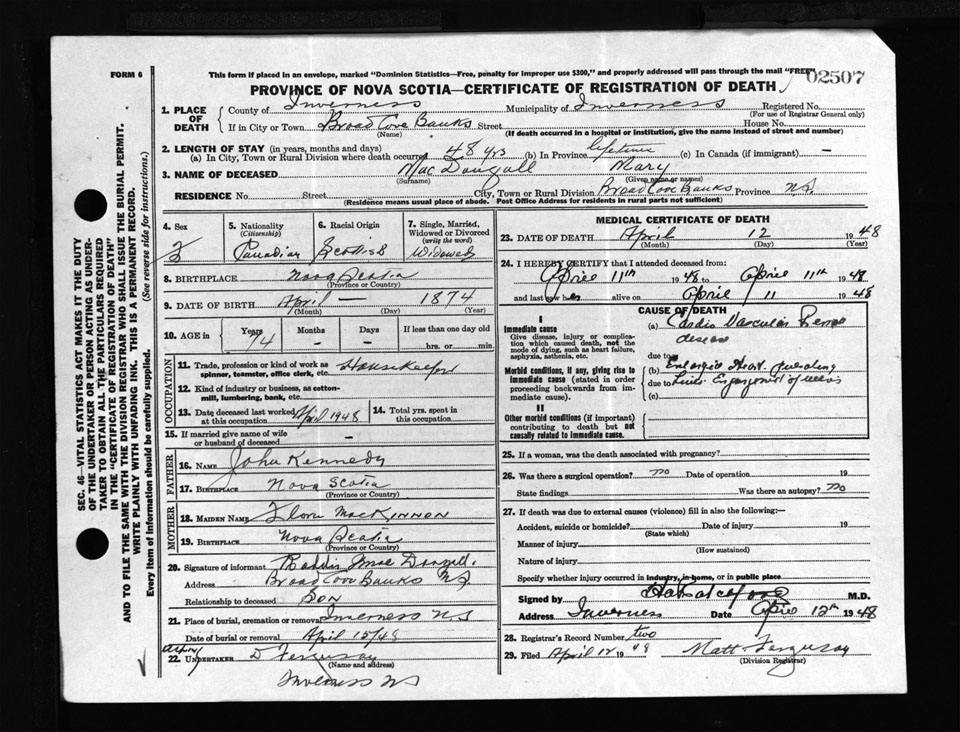 FORM 6
This form if placed in an envelope, marked "Dominion Statistics—Free, penalty for improper use $300," and properly addressed will pass through the mail "FREE"
02507
PROVINCE OF NOVA SCOTIA—CERTIFICATE OF REGISTRATION OF DEATH
1. PLACE OF DEATH
County of Inverness Municipality of Inverness Registered No.
(For use of Registrar General only)
If in City or Town Broad Cove Banks Street House No.
(Name) (If death occurred in a hospital or institution, give the name instead of street and number)
2. LENGTH OF STAY (in years, months and days)
(a) In City, Town or Rural Division where death occurred 48 yrs (b) In Province lifetime (c) In Canada (if immigrant) —
3. NAME OF DECEASED MacDougall Mary
(Surname) (Given name or names)
RESIDENCE No. Street City, Town or Rural Division Broad Cove Banks Province NS
(Residence means usual place of abode. Post Office Address for residents in rural parts not sufficient)
4. Sex
F
5. Nationality
(Citizenship)
Canadian
6. Racial Origin
Scottish
7. Single, Married, Widowed or Divorced
(write the word)
Widowed
8. BIRTHPLACE Nova Scotia
(Province or Country)
9. DATE OF BIRTH April — 1874
(Month) (Day) (Year)
10. AGE in Years 74 Months — Days — If less than one day old
hrs. or min.
OCCUPATION
11. Trade, profession or kind of work as spinner, teamster, office clerk, etc. Housekeeper
12. Kind of industry or business, as cotton-mill, lumbering, bank, etc.
13. Date deceased last worked at this occupation April 1948
14. Total yrs. spent in this occupation
15. If married give name of wife or husband of deceased —
FATHER
16. NAME John Kennedy
17. BIRTHPLACE Nova Scotia
(Province or Country)
MOTHER
18. MAIDEN NAME Flora MacKinnon
19. BIRTHPLACE Nova Scotia
(Province or Country)
20. Signature of informant MacDougall
Address Broad Cove Banks NS
Relationship to deceased Son
21. Place of burial, cremation or removal Inverness NS
Date of burial or removal April 15/48
22. UNDERTAKER D Ferguson
(Name and address)
Inverness NS
MEDICAL CERTIFICATE OF DEATH
23. DATE OF DEATH April 12 1948
(Month) (Day) (Year)
24. I HEREBY CERTIFY that I attended deceased from:
April 11th 1948 to April 11th 1948
and last saw her alive on April 11 1948
CAUSE OF DEATH
I
Immediate cause
Give disease, injury or complication which caused death, not the mode of dying, such as heart failure, asphyxia, asthenia, etc.
(a) Cardio Vascular Renal disease
Morbid conditions, if any, giving rise to immediate cause (stated in order proceeding backwards from immediate cause).
due to
(b) Enlarged Heart
due to
(c)
II
Other morbid conditions (if important) contributing to death but not causally related to immediate cause.
25. If a woman, was the death associated with pregnancy?
26. Was there a surgical operation? no Date of operation 19
State findings Was there an autopsy? no
27. If death was due to external causes (violence) fill in also the following:
Accident, suicide or homicide? Date of injury 19
(State which)
Manner of injury
(How sustained)
Nature of injury
Specify whether injury occurred in industry, in home, or in public place
Signed by M.D.
Address Inverness Date April 12th 1948
28. Registrar's Record Number two
29. Filed April 12 1948 Matt Ferguson
(Division Registrar)
SEC. 46—VITAL STATISTICS ACT MAKES IT THE DUTY
OF THE UNDERTAKER OR PERSON ACTING AS UNDER-
TAKER TO OBTAIN ALL THE PARTICULARS REQUIRED
IN THE "CERTIFICATE OF REGISTRATION OF DEATH"
AND TO FILE THE SAME WITH THE DIVISION REGISTRAR WHO SHALL ISSUE THE BURIAL PERMIT.
WRITE PLAINLY WITH UNFADING INK. THIS IS A PERMANENT RECORD.
Every item of Information should be carefully supplied. (See reverse side for instructions.)